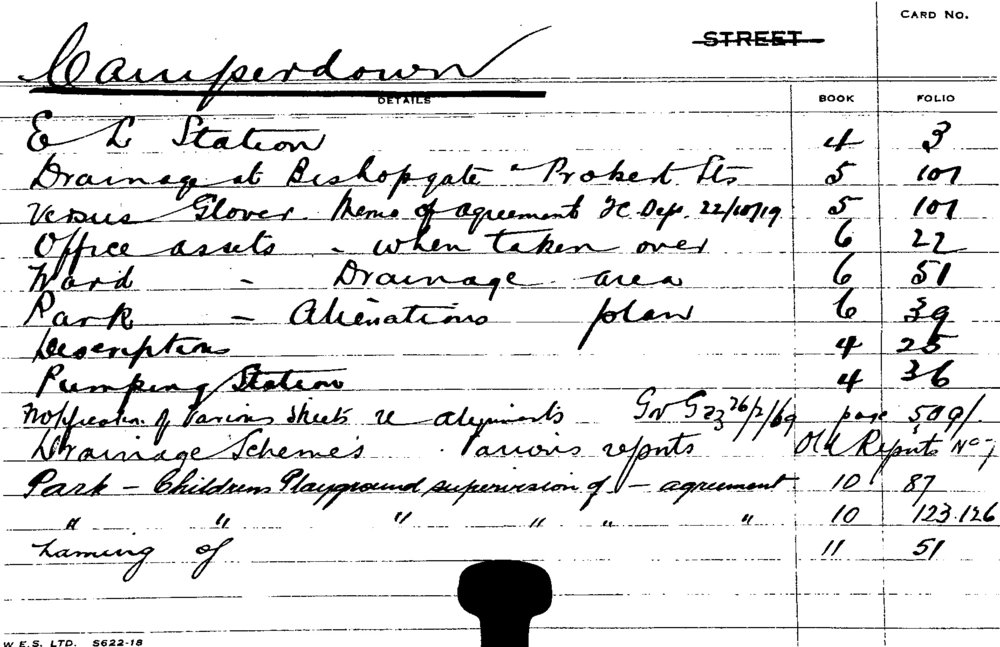 CARD NO.
STREET
Camperdown
DETAILS BOOK FOLIO
E L Station 4 3
Drainage at Bishopgate " Probert Sts 5 107
Versus Glover. Memo of agreement T.C. Dept. 22/10/19 5 107
Office assets - when taken over 6 22
Ward - Drainage area 6 51
Park - Alienations plan 6 39
Descriptions 4 25
Pumping Station 4 36
Notification of Various Streets re alignments Gov Gaz 26/2/69 page 509/.
Drainage Schemes Various reports Old Reports No 7
Park - Childrens Playground supervision of - agreement 10 87
" " " " " " 10 123.126
Naming of 11 51
W.E.S. LTD. S622-18